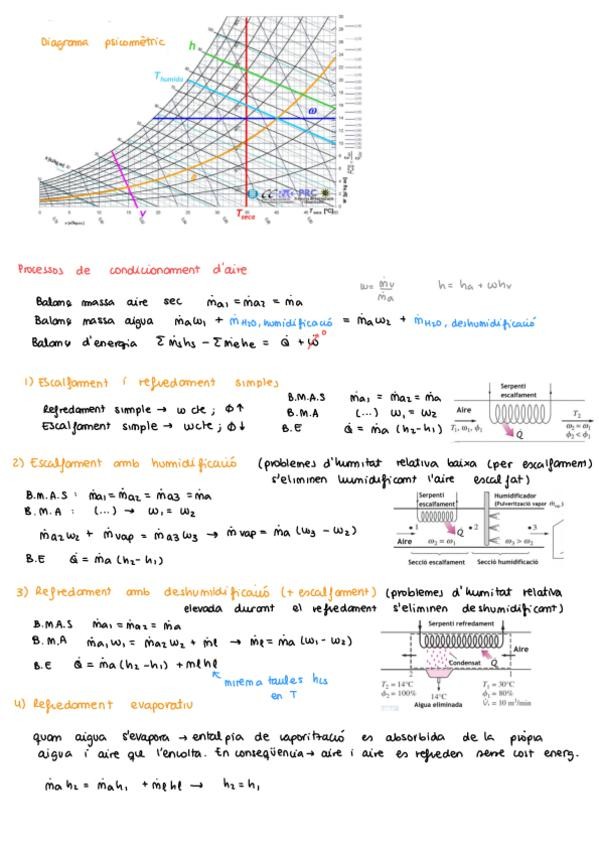 Diagrama psicomètric
h
T humida
ω
v
T seca
PRC
T seca [°C]
0 5 10 15 20 25 30 35 40 45 50
Processos de condicionament d'aire
ω = ṁv / ṁa    h = ha + ωhv
Balanç massa aire sec    ṁa1 = ṁa2 = ṁa
Balanç massa aigua    ṁaω1 + ṁH2O, humidificació = ṁaω2 + ṁH2O, deshumidificació
Balanç d'energia    Σṁshs − Σṁehe = Q̇ + ẇ 0
1) Escalfament i refredament simples
Refredament simple → ω cte ; ϕ↑
Escalfament simple → ωcte ; ϕ↓
B.M.A.S    ṁa1 = ṁa2 = ṁa
B.M.A    (...) ω1 = ω2
B.E    Q̇ = ṁa (h2-h1)
Serpentí escalfament
Aire
T1, ω1, ϕ1
Q̇
T2
ω2 = ω1
ϕ2 < ϕ1
2) Escalfament amb humidificació (problemes d'humitat relativa baixa (per escalfament)
s'eliminen humidificant l'aire escalfat)
B.M.A.S : ṁa1 = ṁa2 = ṁa3 = ṁa
B.M.A : (...) → ω1 = ω2
ṁa2ω2 + ṁvap = ṁa3ω3 → ṁvap = ṁa (ω3 − ω2)
B.E    Q̇ = ṁa (h2-h1)
Serpentí escalfament
Humidificador
(Pulverització vapor
•1
Q̇
•2
•3
Aire    ω2 = ω1    ω3 > ω2
Secció escalfament    Secció humidificació
3) Refredament amb deshumidificació (+ escalfament) (problemes d'humitat relativa
elevada durant el refredament s'eliminen deshumidificant)
B.M.A.S    ṁa1 = ṁa2 = ṁa
B.M.A    ṁa1ω1 = ṁa2ω2 + ṁl → ṁl = ṁa (ω1 − ω2)
B.E    Q̇ = ṁa (h2-h1) + ṁlhl
mirem a taules hls
en T
Serpentí refredament
Aire
Condensat
Q̇
2
1
T2 = 14°C
ϕ2 = 100%
14°C
Aigua eliminada
T1 = 30°C
ϕ1 = 80%
V̇1 = 10 m³/min
4) Refredament evaporatiu
quan aigua s'evapora → entalpia de vaporització es absorbida de la pròpia
aigua i aire que l'envolta. En conseqüència → aire i aire es refreden sense cost energ.
ṁah2 = ṁah1 + ṁlhl → h2 = h1